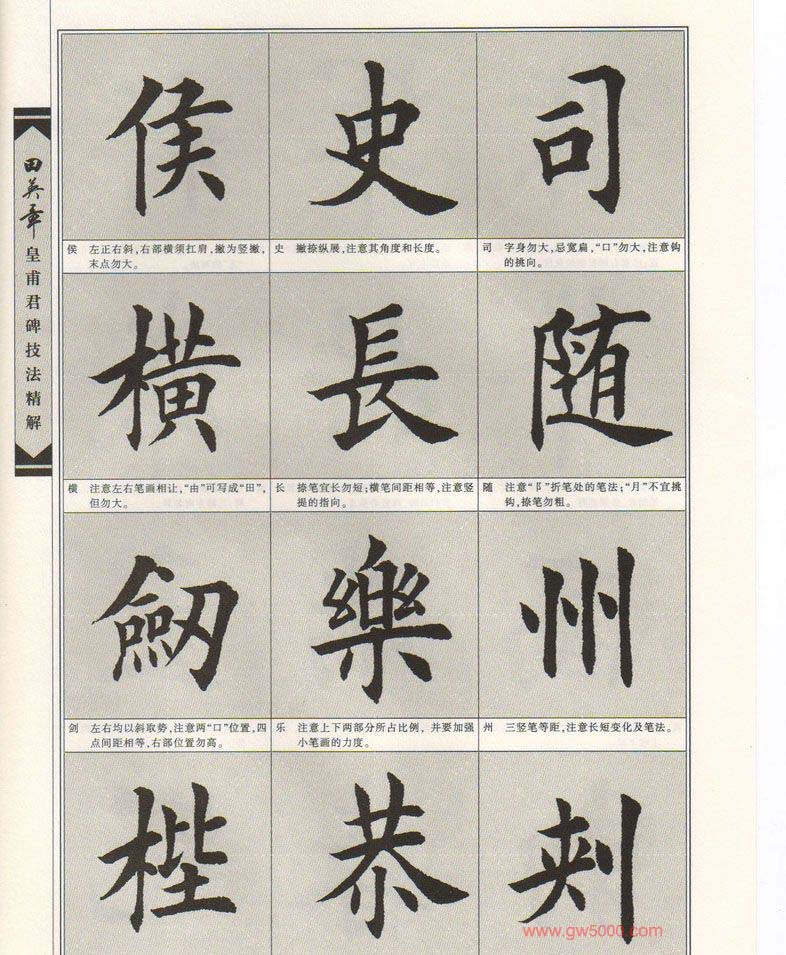 田英章
皇甫君碑技法精解
侯 史 司
侯 左正右斜,右部横须扛肩,撇为竖撇,
末点勿大。
史 撇捺纵展,注意其角度和长度。
司 字身勿大,忌宽扁,“口”勿大,注意钩
的挑向。
横 長 随
横 注意左右笔画相让,“由”可写成“田”,
但勿大。
长 捺笔宜长勿短;横笔间距相等,注意竖
提的指向。
随 注意“阝”折笔处的笔法;“月”不宜挑
钩,捺笔勿粗。
劒 樂 州
剑 左右均以斜取势,注意两“口”位置,四
点间距相等,右部位置勿高。
乐 注意上下两部分所占比例, 并要加强
小笔画的力度。
州 三竖笔等距,注意长短变化及笔法。
梐 恭 刾
www.gw5000.com